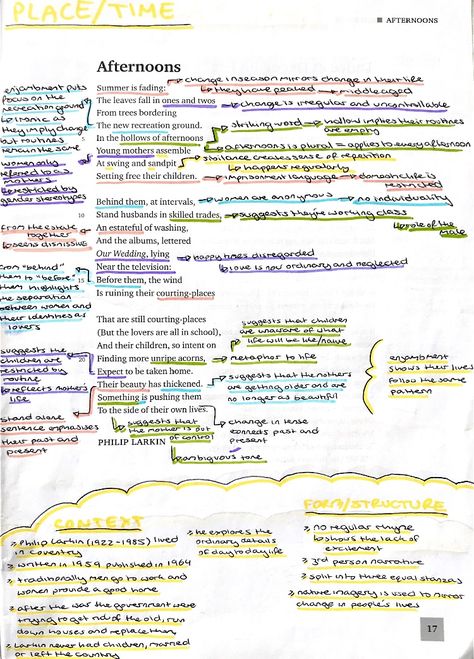 PLACE/TIME
AFTERNOONS
Afternoons
Summer is fading:
The leaves fall in ones and twos
From trees bordering
The new recreation ground.
In the hollows of afternoons
Young mothers assemble
At swing and sandpit
Setting free their children.
Behind them, at intervals,
10
Stand husbands in skilled trades,
An estateful of washing,
And the albums, lettered
Our Wedding, lying
Near the television:
15
Before them, the wind
Is ruining their courting-places
That are still courting-places
(But the lovers are all in school),
And their children, so intent on
20
Finding more unripe acorns,
Expect to be taken home.
Their beauty has thickened.
Something is pushing them
To the side of their own lives.
PHILIP LARKIN
change in season mirrors change in their life
they have peaked → middle aged
change is irregular and uncontrollable
striking word → hollow implies their routines
are empty
afternoons is plural = applies to every afternoon
sibilance creates sense of repetition
happens regularly
imprisonment language → domestic life is
restricted
women are anonymous → no individuality
suggests they're working class
role of the
male
happy times disregarded
love is now ordinary and neglected
suggests that children
are unaware of what
life will be like/naive
metaphor to life
suggests that the mothers
are getting older and are
no longer as beautiful
change in tense
connects past and
present
suggests that
the mother is out
of control
ambiguous tone
enjambment
shows their lives
follow the same
pattern
enjambment puts
focus on the
recreation ground
ironic as
they imply change
but routines
remain the same
women only
referred to as
mothers
restricted by
gender stereotypes
from the estate
together
seens dismissive
from "behind"
them to "before"
them highlights
the separation
between women and
their identities as
lovers
suggests the
children are
restricted by
routine
reflects mother's
life
stand alone
sentence emphasises
their past and
present
CONTEXT
Philip Larkin (1922-1985) lived
in Coventry
written in 1959 published in 1964
traditionally men go to work and
women provide a good home
after the war the government were
trying to get rid of the old, run
down houses and replace them
Larkin never had children, married
or left the country
he explores the
ordinary details
of day to day life
FORM/STRUCTURE
no regular rhyme
shows the lack of
excitement
3rd person narrative
split into three equal stanzas
nature imagery is used to mirror
change in people's lives
17